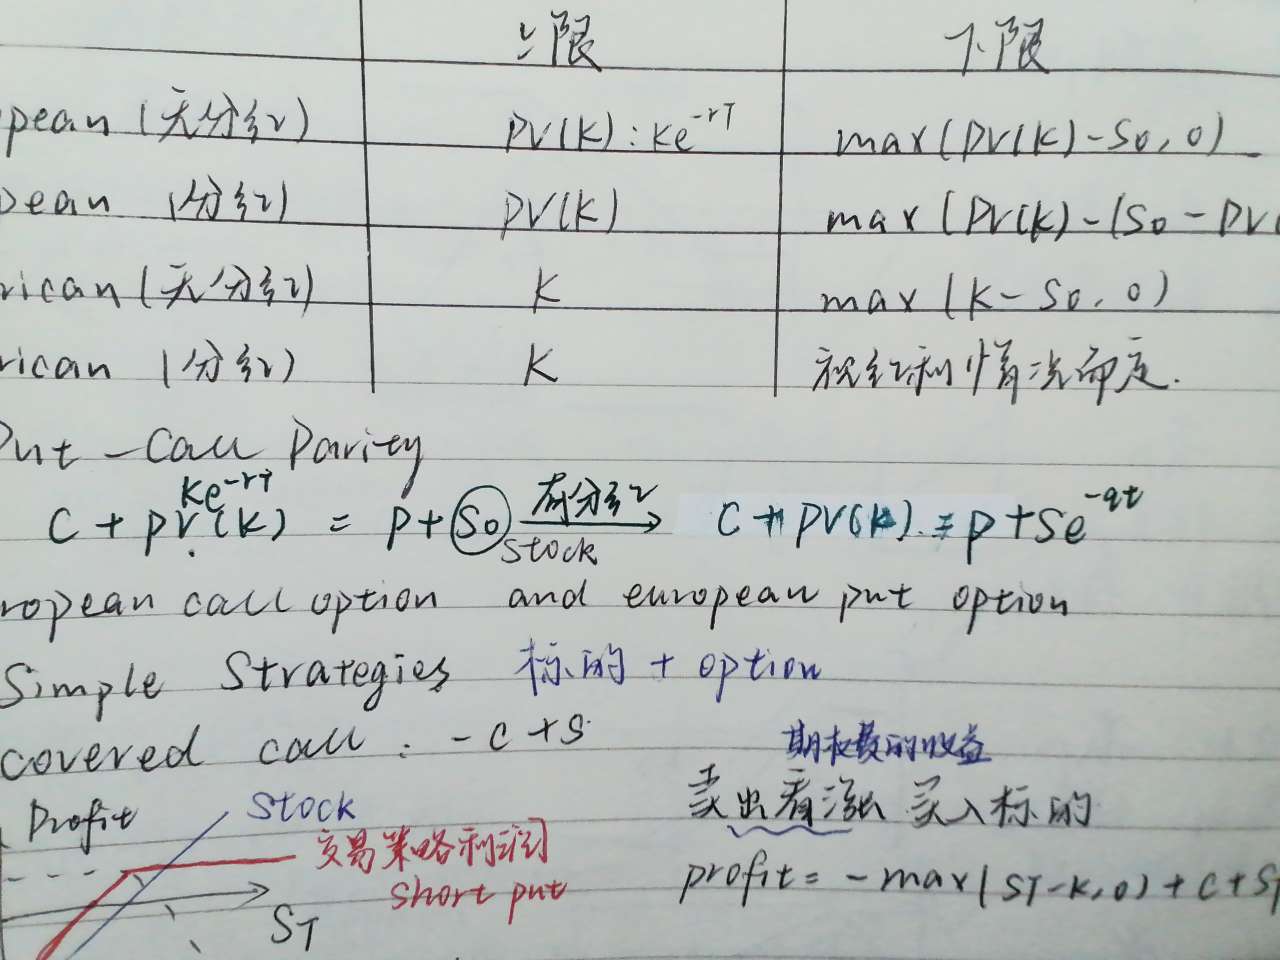 上限 下限
pean (无分红) PV(K) : Ke^-rT max(PV(K)-S0, 0)
pean (分红) PV(K) max (PV(K)-(S0-PV(
rican (无分红) K max (K-S0, 0)
rican (分红) K 视红利情况而定.
Put-Call Parity
Ke^-rT
C + PV(K) = P + S0 有分红 → C + PV(K) = P + Se^-qt
stock
ropean call option and european put option
Simple Strategies 标的 + option
covered call : -C+S
期权费的收益
Profit Stock 卖出看涨 买入标的
交易策略利润
short put profit = -max(ST-K, 0) + C + ST
ST